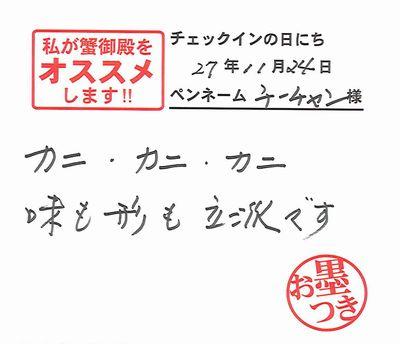 私が蟹御殿を
オススメ
します!!
チェックインの日にち
27年11月24日
ペンネーム ケーチャン様
カニ・カニ・カニ
味も形も立派です
お墨つき